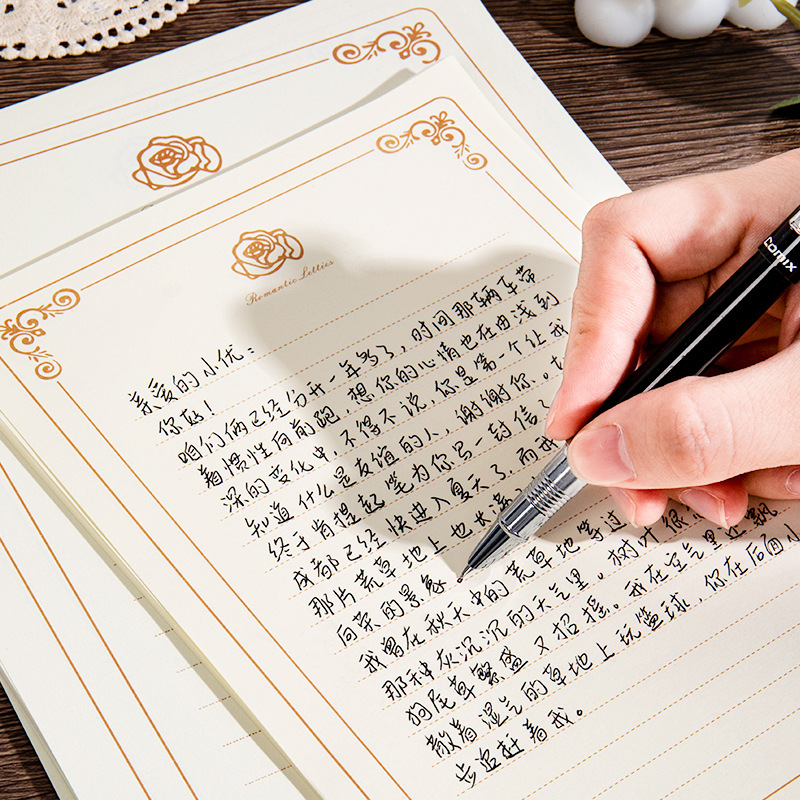 Romantic Letters
comix
亲爱的小优：
你好！
咱们俩已经分开一年多了，时间那辆车带
着惯性向前跑，想你的心情也在由浅到
深的变化中，不得不说，你是第一个让我
知道什么是友谊的人，谢谢你，
终于肯提起笔为你写一封信了
成都已经快进入夏天了，而我
那片荒草地上也长满
向荣的景象
我曾在秋天中的荒草地等过
那种灰沉沉的天气里。树叶很
狗尾草繁盛又招摇。我在空气里还飘
散着湿气的草地上玩篮球，你在后面小
步追赶着我。